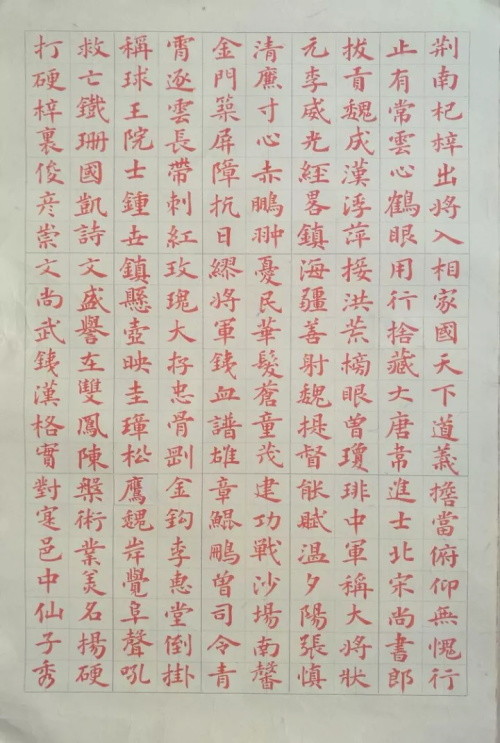 荆南杞梓出將入相家國天下道義擔當俯仰無愧行
止有常雲心鶴眼用行捨藏大唐常進士北宋尚書郎
拔貢魏戍漢浮萍接洪荒楠眼曾瓊琲中軍稱大將狀
元李威光經畧鎮海疆善射魏提督能賦溫夕陽張慎
清廉寸心赤鵬翀憂民華髮蒼童茂建功戰沙場南馨
金門築屏障抗日繆將軍銕血譜雄章鯤鵬曾司令青
霄逐雲長帶刺紅玫瑰大存忠骨剛金鈎李惠堂倒掛
稱球王院士鍾世鎮懸壺映圭璋松鷹魏岸覺阜聲吼
救亡鐵珊國凱詩文盛譽在雙鳳陳槃術業美名揚硬
打硬梓裏俊彥崇文尚武銕漢格實對寔邑中仙子秀